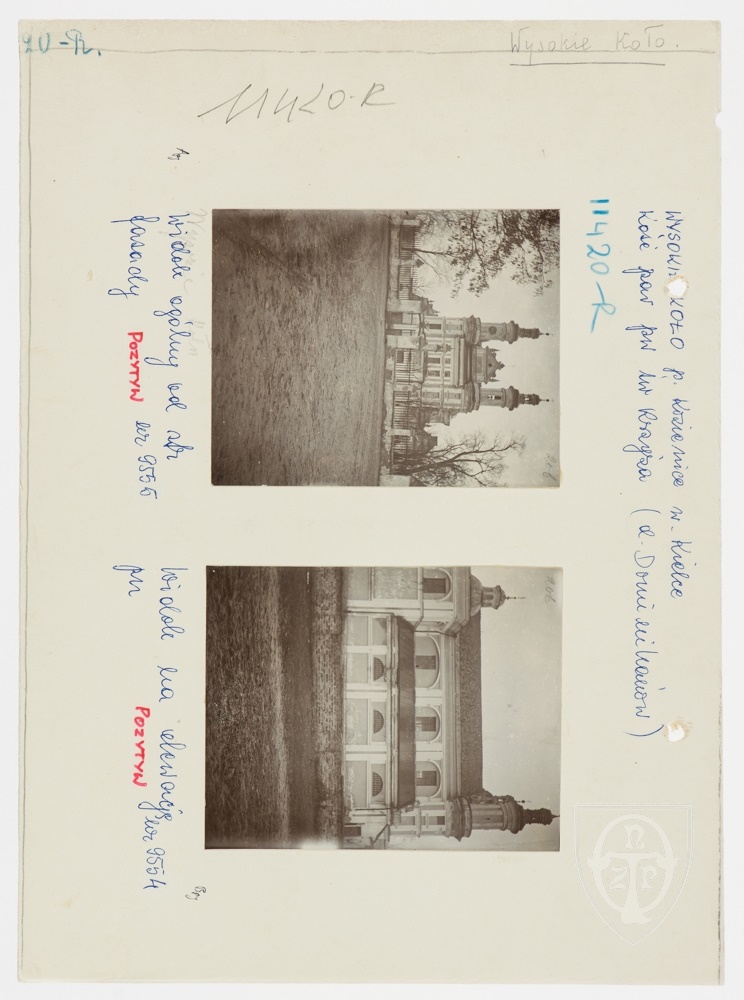 20-R.
Wysokie Koło.
11420-R
WYSOKIE KOŁO p. Kozienice w. Kielce
Kość par pw św Krzyża (d. Dominikanów)
11420-R
Widok ogólny od str
fasady POZYTYW nr 9555
Widok na elewację
pn POZYTYW nr 9554